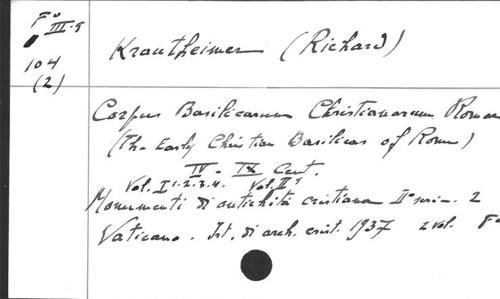 F° III-5
104
(2)
Krautheimer (Richard)
Corpus Basilicarum Christianarum Romae
(The Early Christian Basilicas of Rome)
IV - IX Cent.
Vol. I 1.2.3.4. Vol. II 1
Monumenti di antichità cristiana II° serie. 2
Vaticano. Ist. di arch. crist. 1937 2 vol. F°